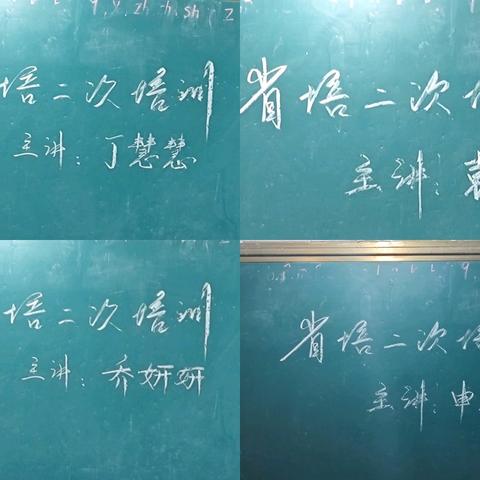 q, y, zh, ch, sh
培二次培训
主讲：丁慧慧
省培二次培
主讲：袁
培二次培训
主讲：乔妍妍
省培二次培
主讲：申